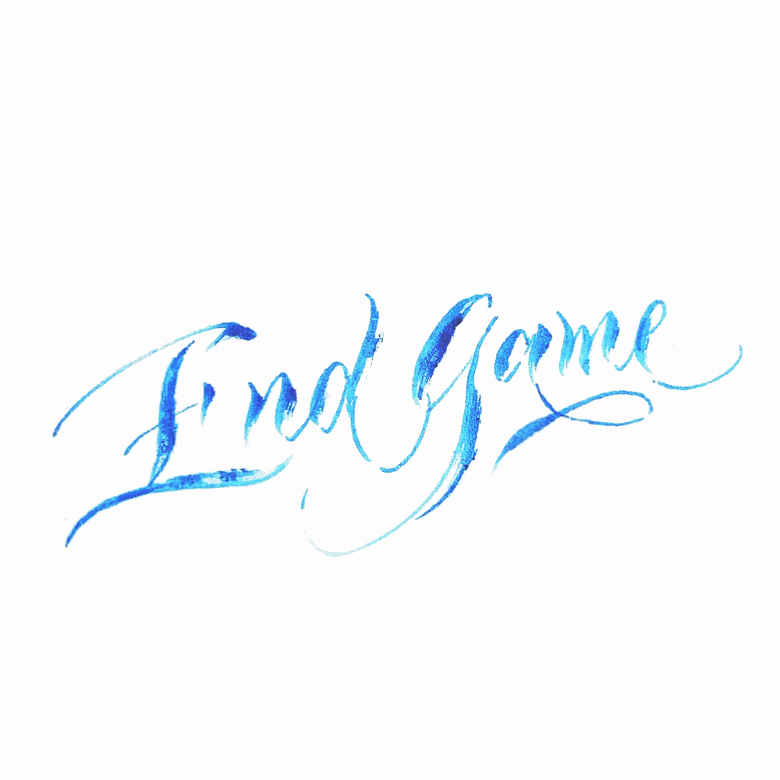 End Game